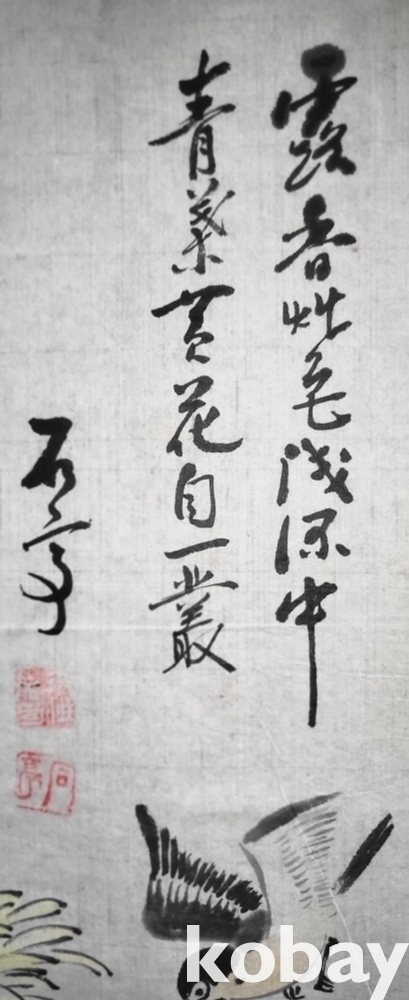 露香艸色淺深中
青葉黃花自一叢
石亭
kobay